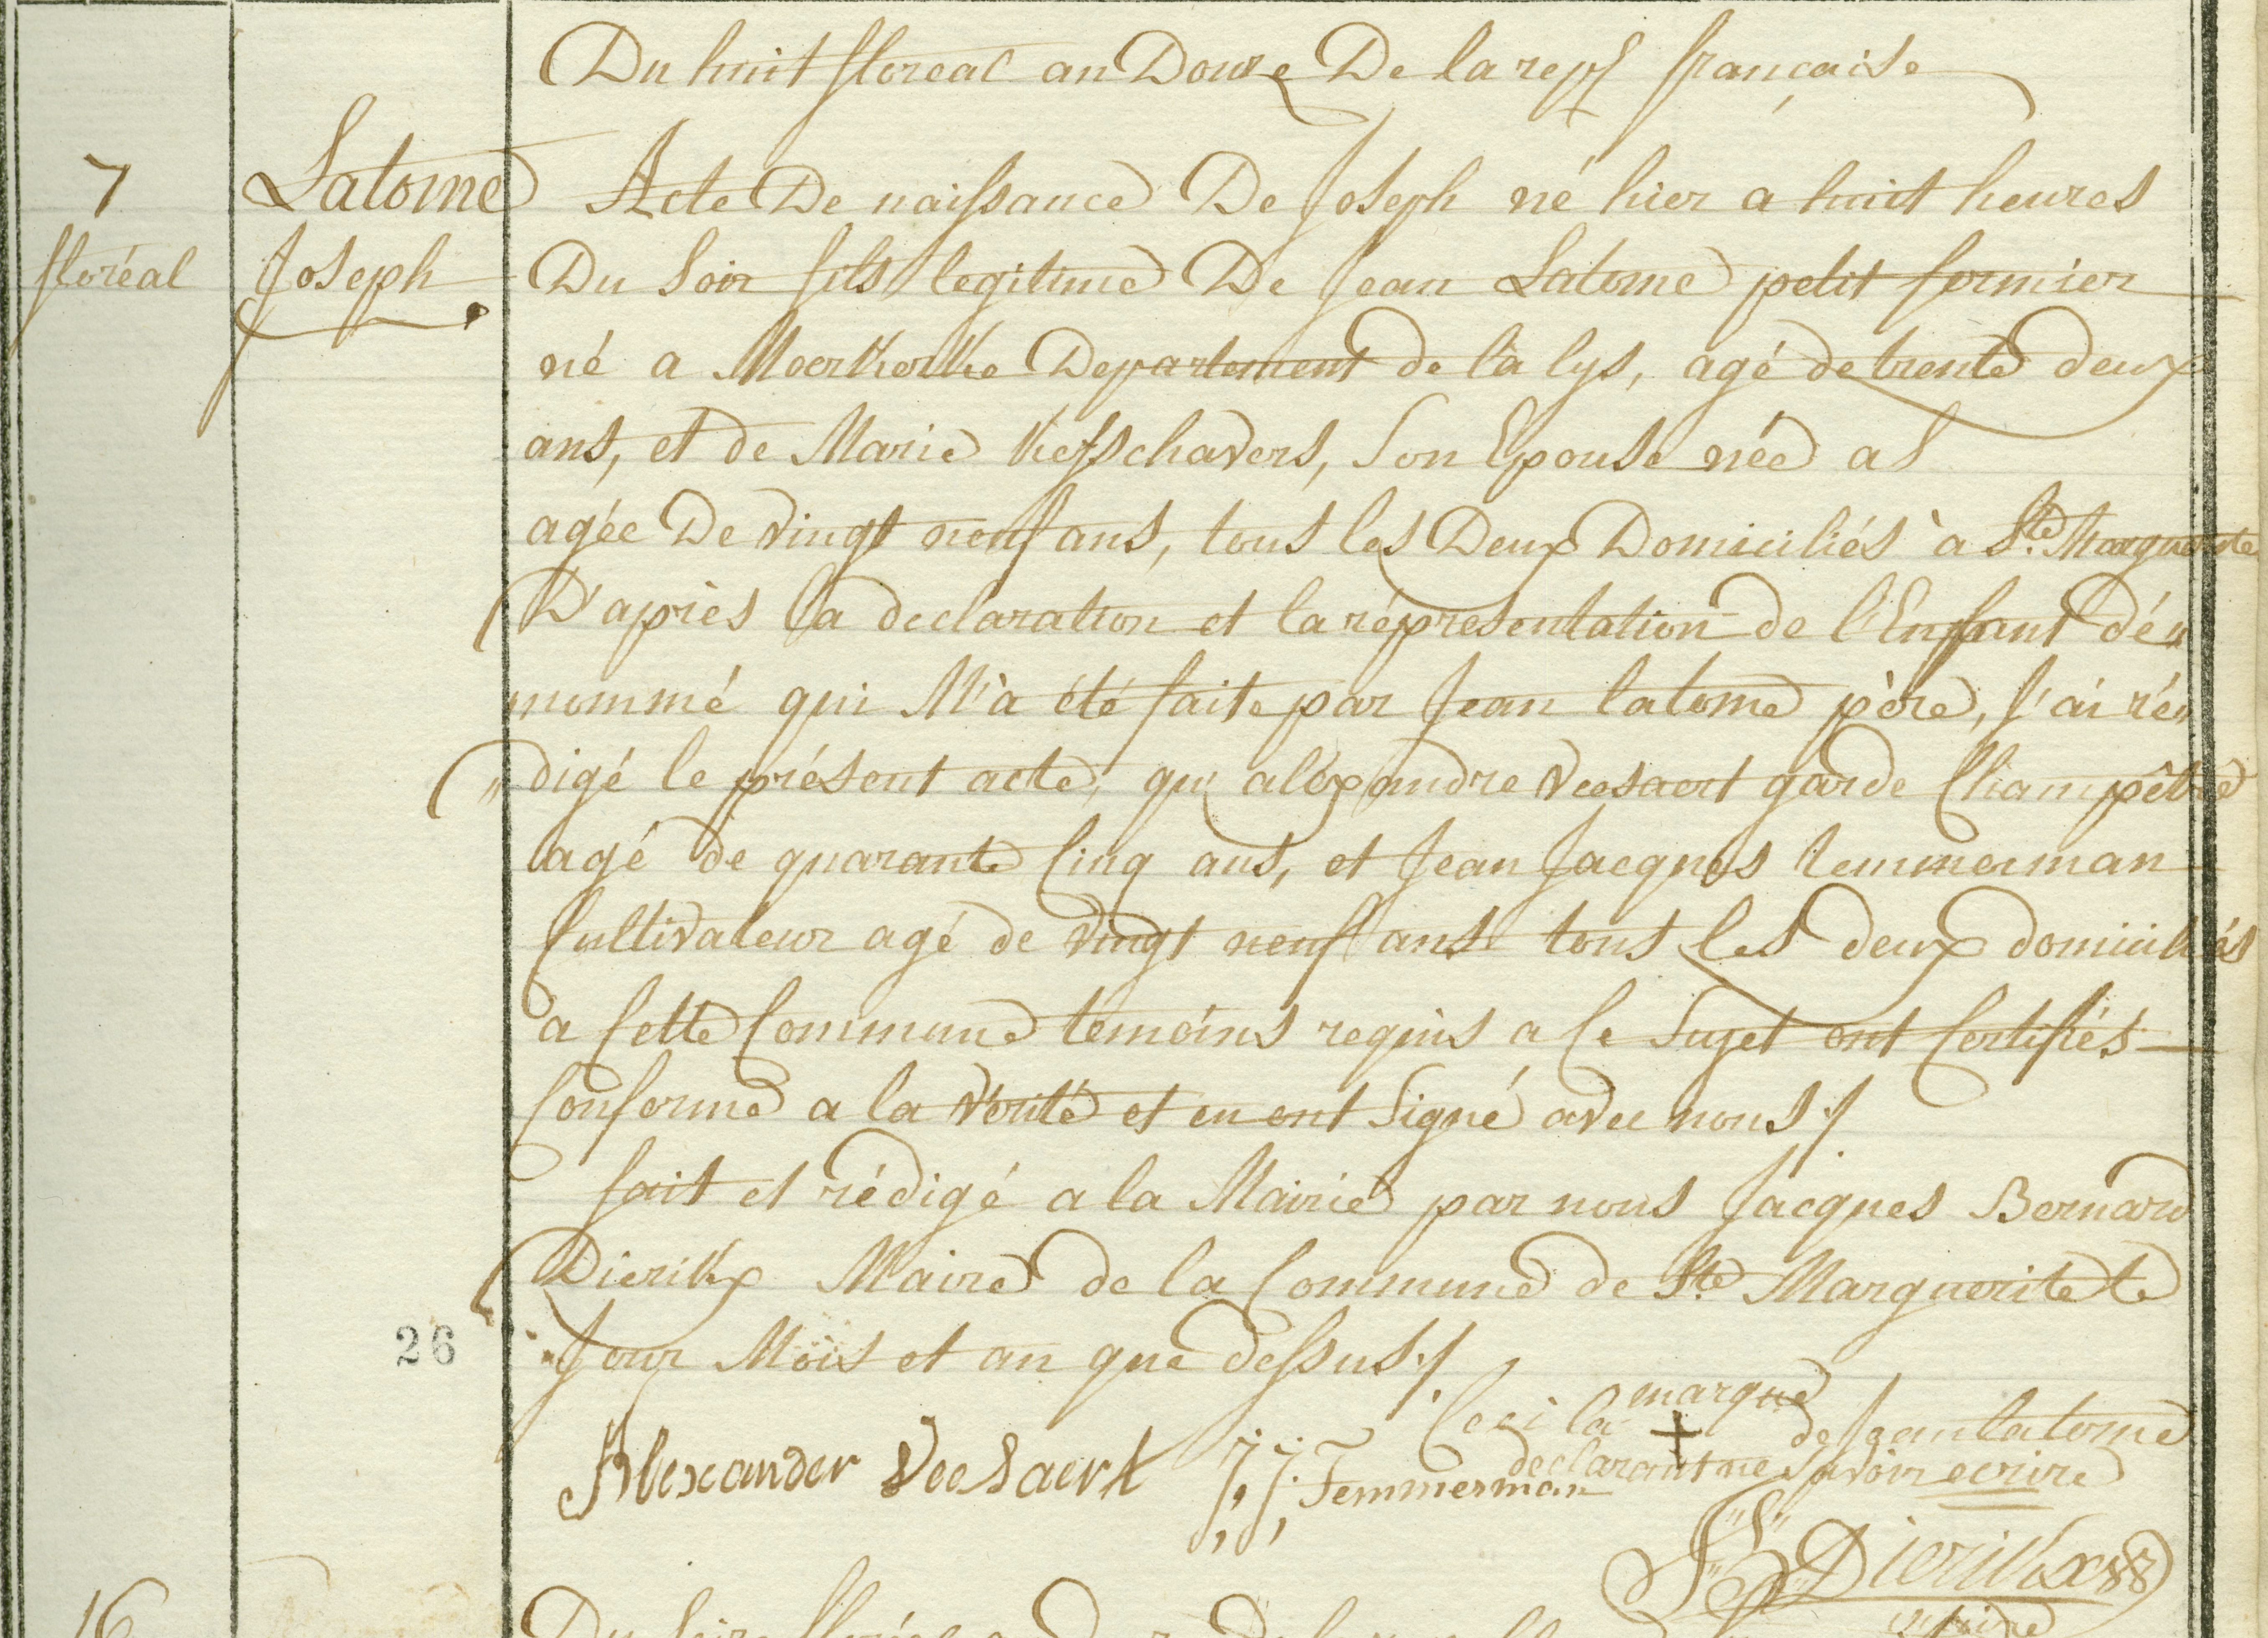 Du huit floreal an Douze De la rep.f française
7
floréal
Latome
Joseph
Acte De naissance De Joseph né hier a huit heures
Du Soir fils legitime De Jean Latome petit formier
né a Moerkerke Departement de la lys, agé de trente deux
ans, et de Marie Kesschavers, Son Epouse née a
agée De vingt neuf ans, tous les Deux Domiciliés à Ste. Marguerite
D'après la declaration et la réprésentation de l'Enfant dé„
nommé qui M'à été faite par Jean latome père, J'ai ré„
„digé le présent acte, qu' alexandre Veesaert garde Champêtre
agé de quarante Cinq ans, et Jean Jacques temmerman
Cultivateur agé de vingt neuf ans tous les deux domiciliés
a Cette Commune temoins requis a Ce Sujet ont Certifiés
Conforme a la Verité et en ont Signé avec nous ./
fait et rédigé a la Mairie par nous Jacques Bernard
Dierikx Maire de la Commune de Ste Marguerite le
Jour Mois et an que dessus ./
26
Ceci la marque
+ de Jean latome
declarant ne savoir ecrire
Alexander VeeSaert J: J: Temmerman
Dierikx
maire
16